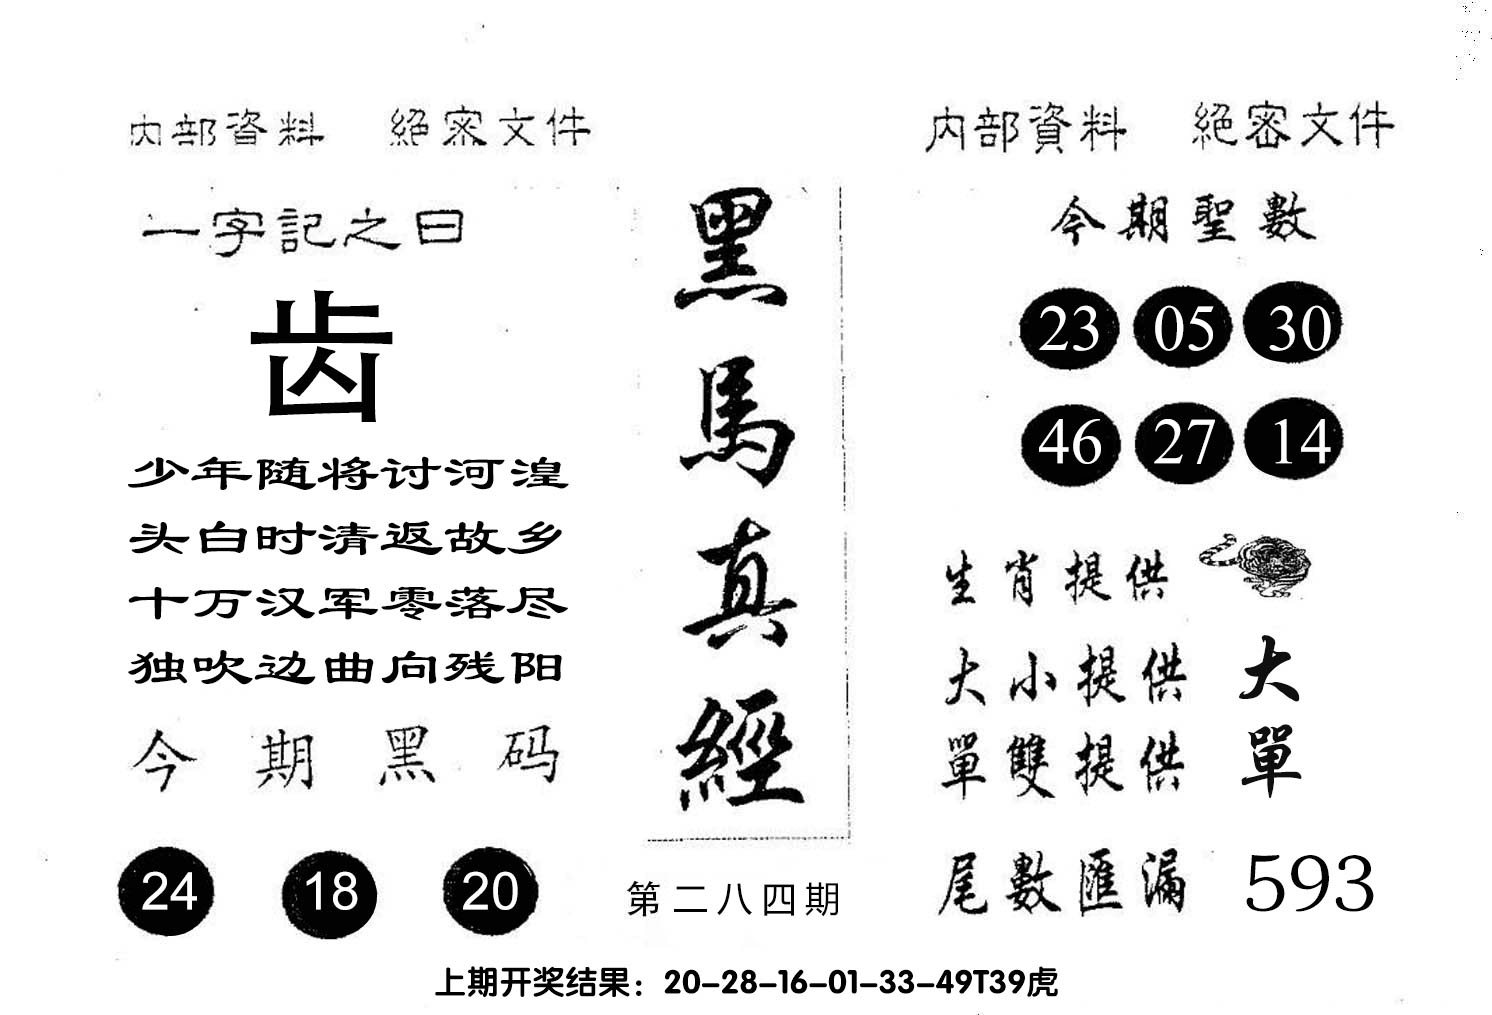 内部資料 絕密文件
一字記之曰
齿
少年随将讨河湟
头白时清返故乡
十万汉军零落尽
独吹边曲向残阳
今期黑码
24 18 20
黑馬真經
第二八四期
内部資料 絕密文件
今期聖數
23 05 30
46 27 14
生肖提供
大小提供 大
單雙提供 單
尾數匯漏 593
上期开奖结果：20-28-16-01-33-49T39虎